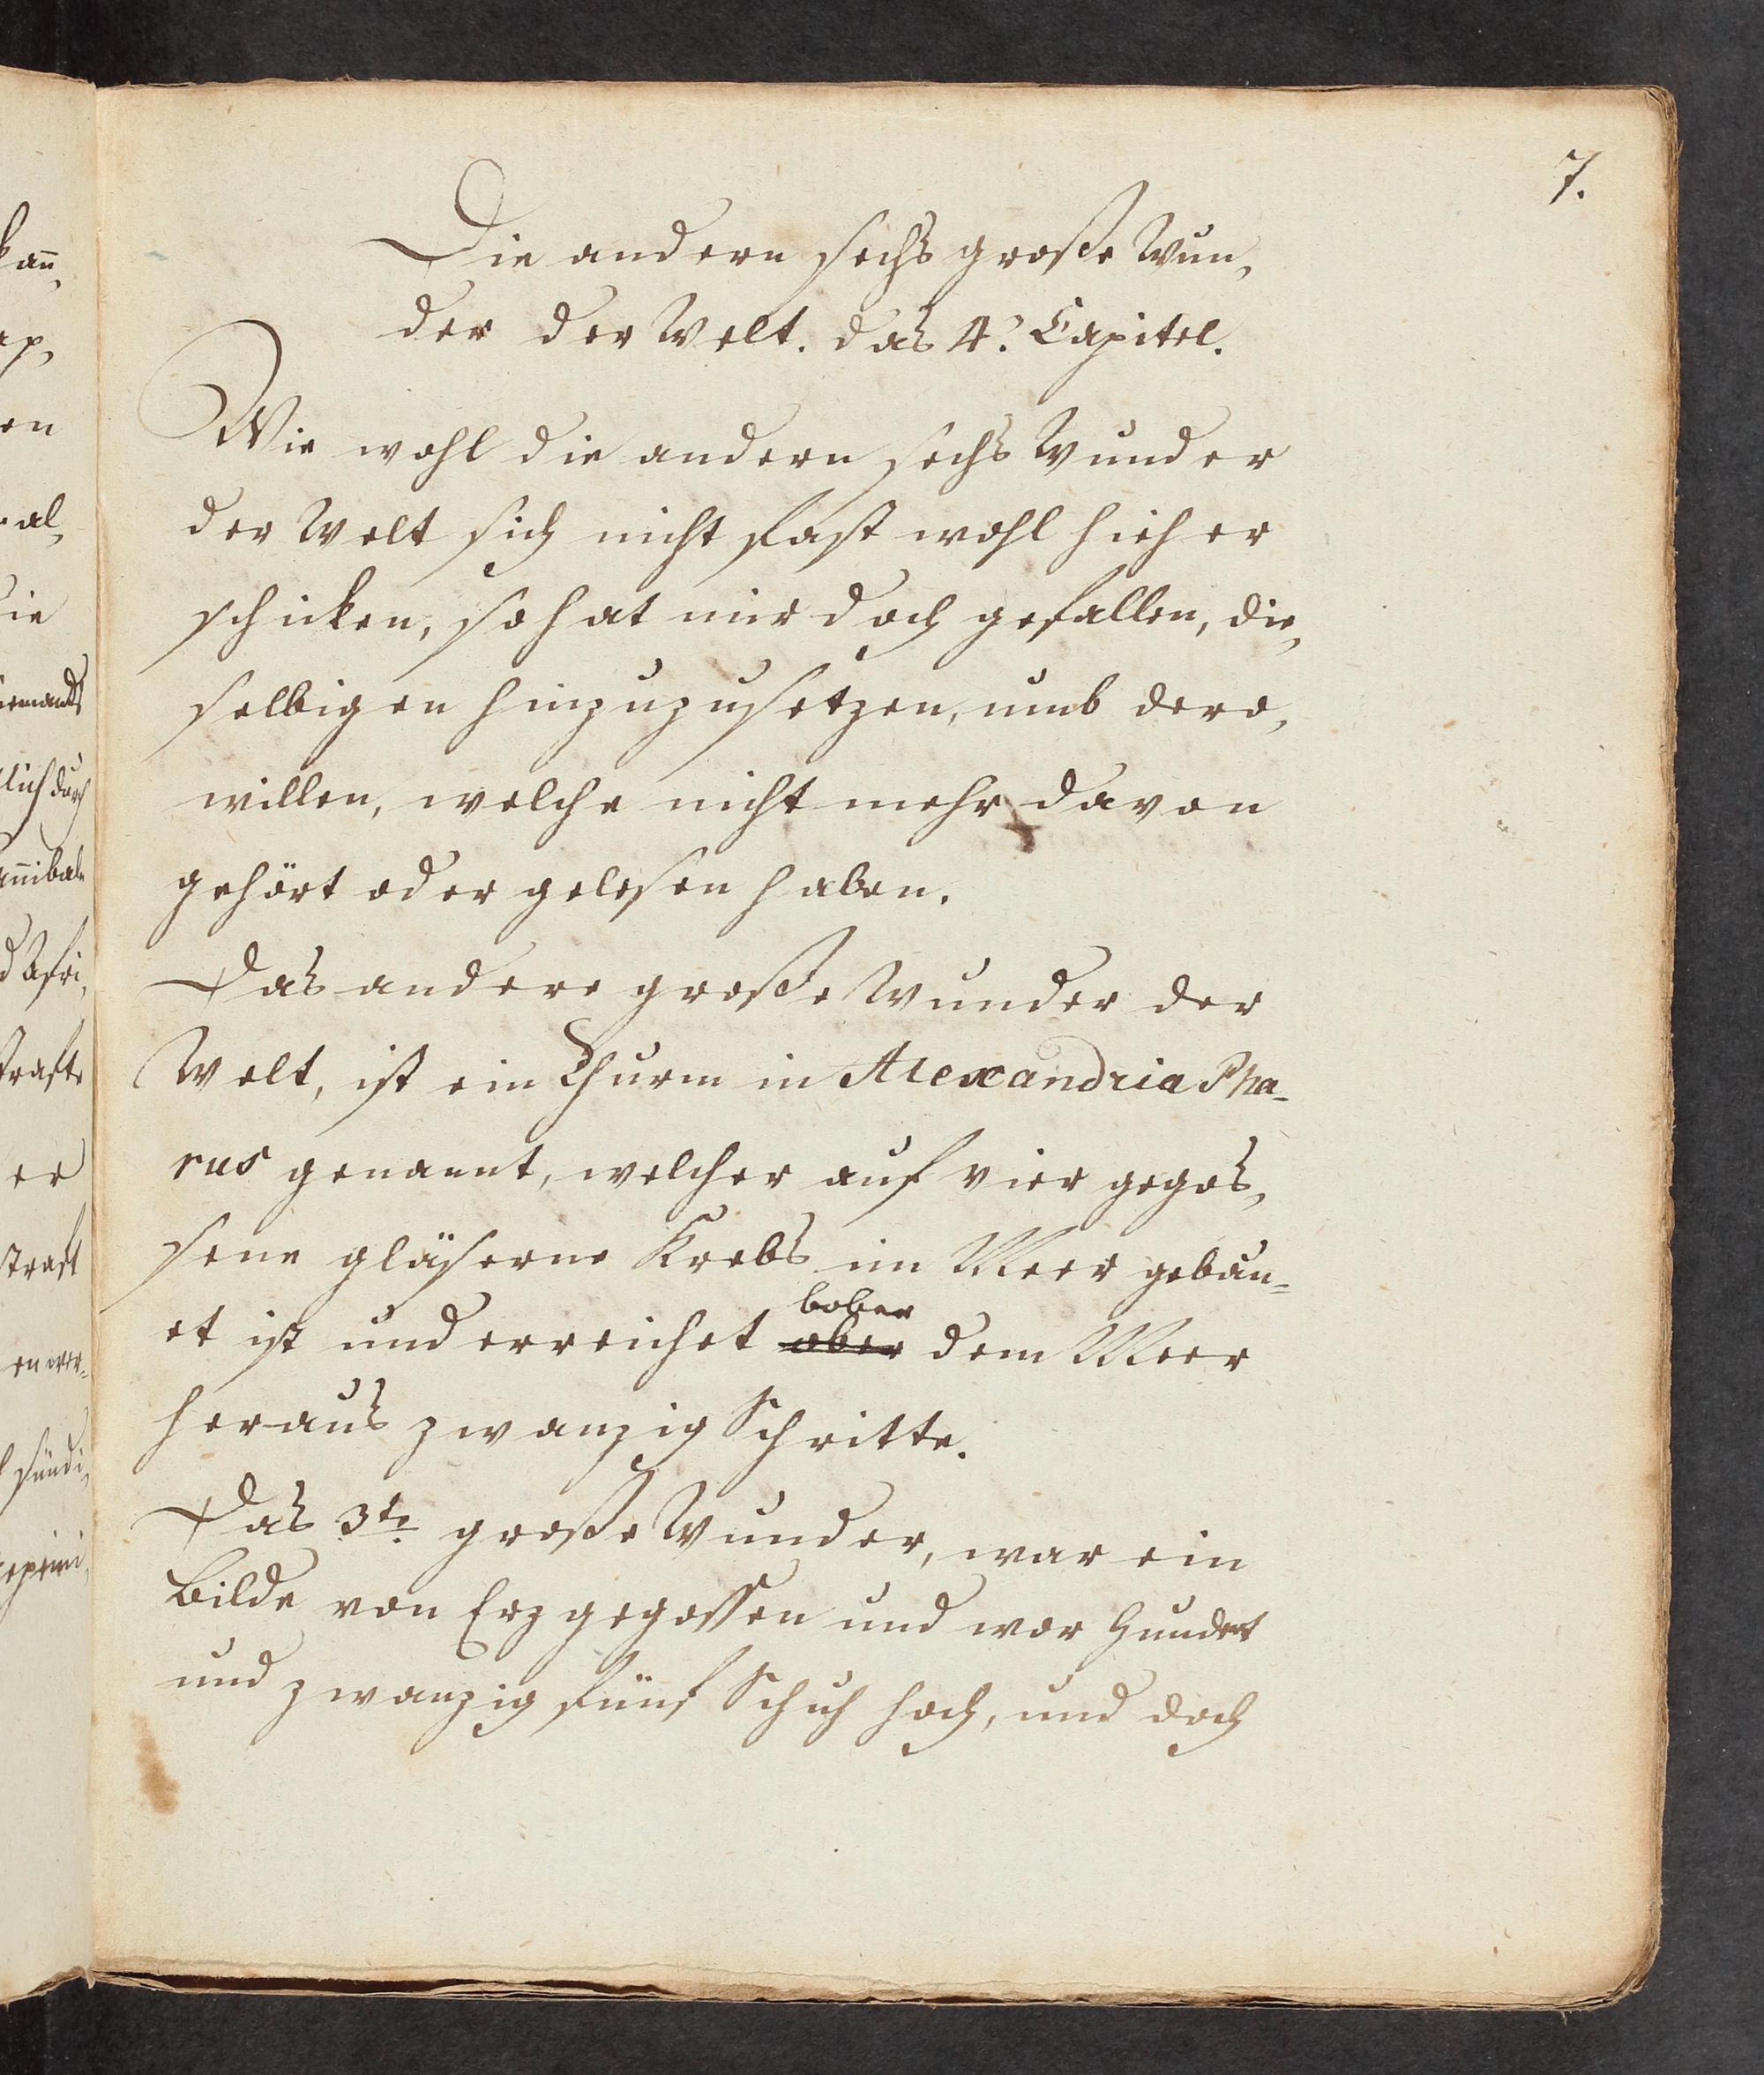 7.
Die andern sechs große Wun,
der der Welt. das 4. Capitel.
Wie wohl die andern sechs Wunder
der Welt sich nicht fast wohl hieher
schicken, so hat mir doch gefallen, die,
selbigen hinzuzusetzen, umb dero,
willen, welche nicht mehr davon
gehört oder gelesen haben.
Das andere große Wunder der
Welt, ist ein Thurm in Alexandria Pha-
rus genannt, welcher auf vier gegos,
sene gläserne Krebs im Meer gebau-
bober
et ist und erreichet ober dem Meer
heraus zwanzig Schritte.
Das 3te große Wunder, war ein
Bilde von Erz gegossen und war hundert
und zwanzig fünf Schuh hoch, und doch
kan̄,
ap,
en
al,
die
niemands
lich durch
an̄ibale
d Afri,
er
en ver-
sündi,